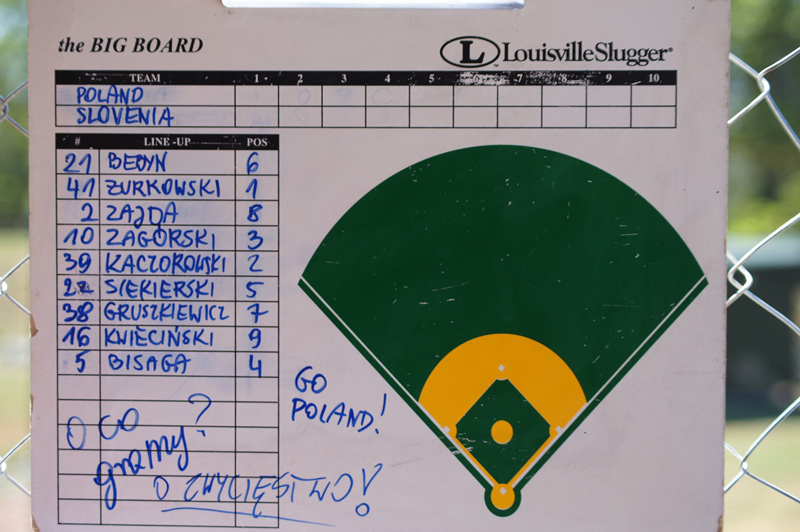 the BIG BOARD
L LouisvilleSlugger®
TEAM 1 2 3 4 5 6 7 8 9 10
POLAND
SLOVENIA
# LINE-UP POS
21 BEDYN 6
41 ŻURKOWSKI 1
2 ZAJDA 8
10 ZAGÓRSKI 3
39 KACZOROWSKI 2
22 SIEKIERSKI 5
38 GRUSZKIEWICZ 7
16 KWIECIŃSKI 9
5 BISAGA 4
GO
POLAND!
O CO
gramy?
O ZWYCIĘSTWO!